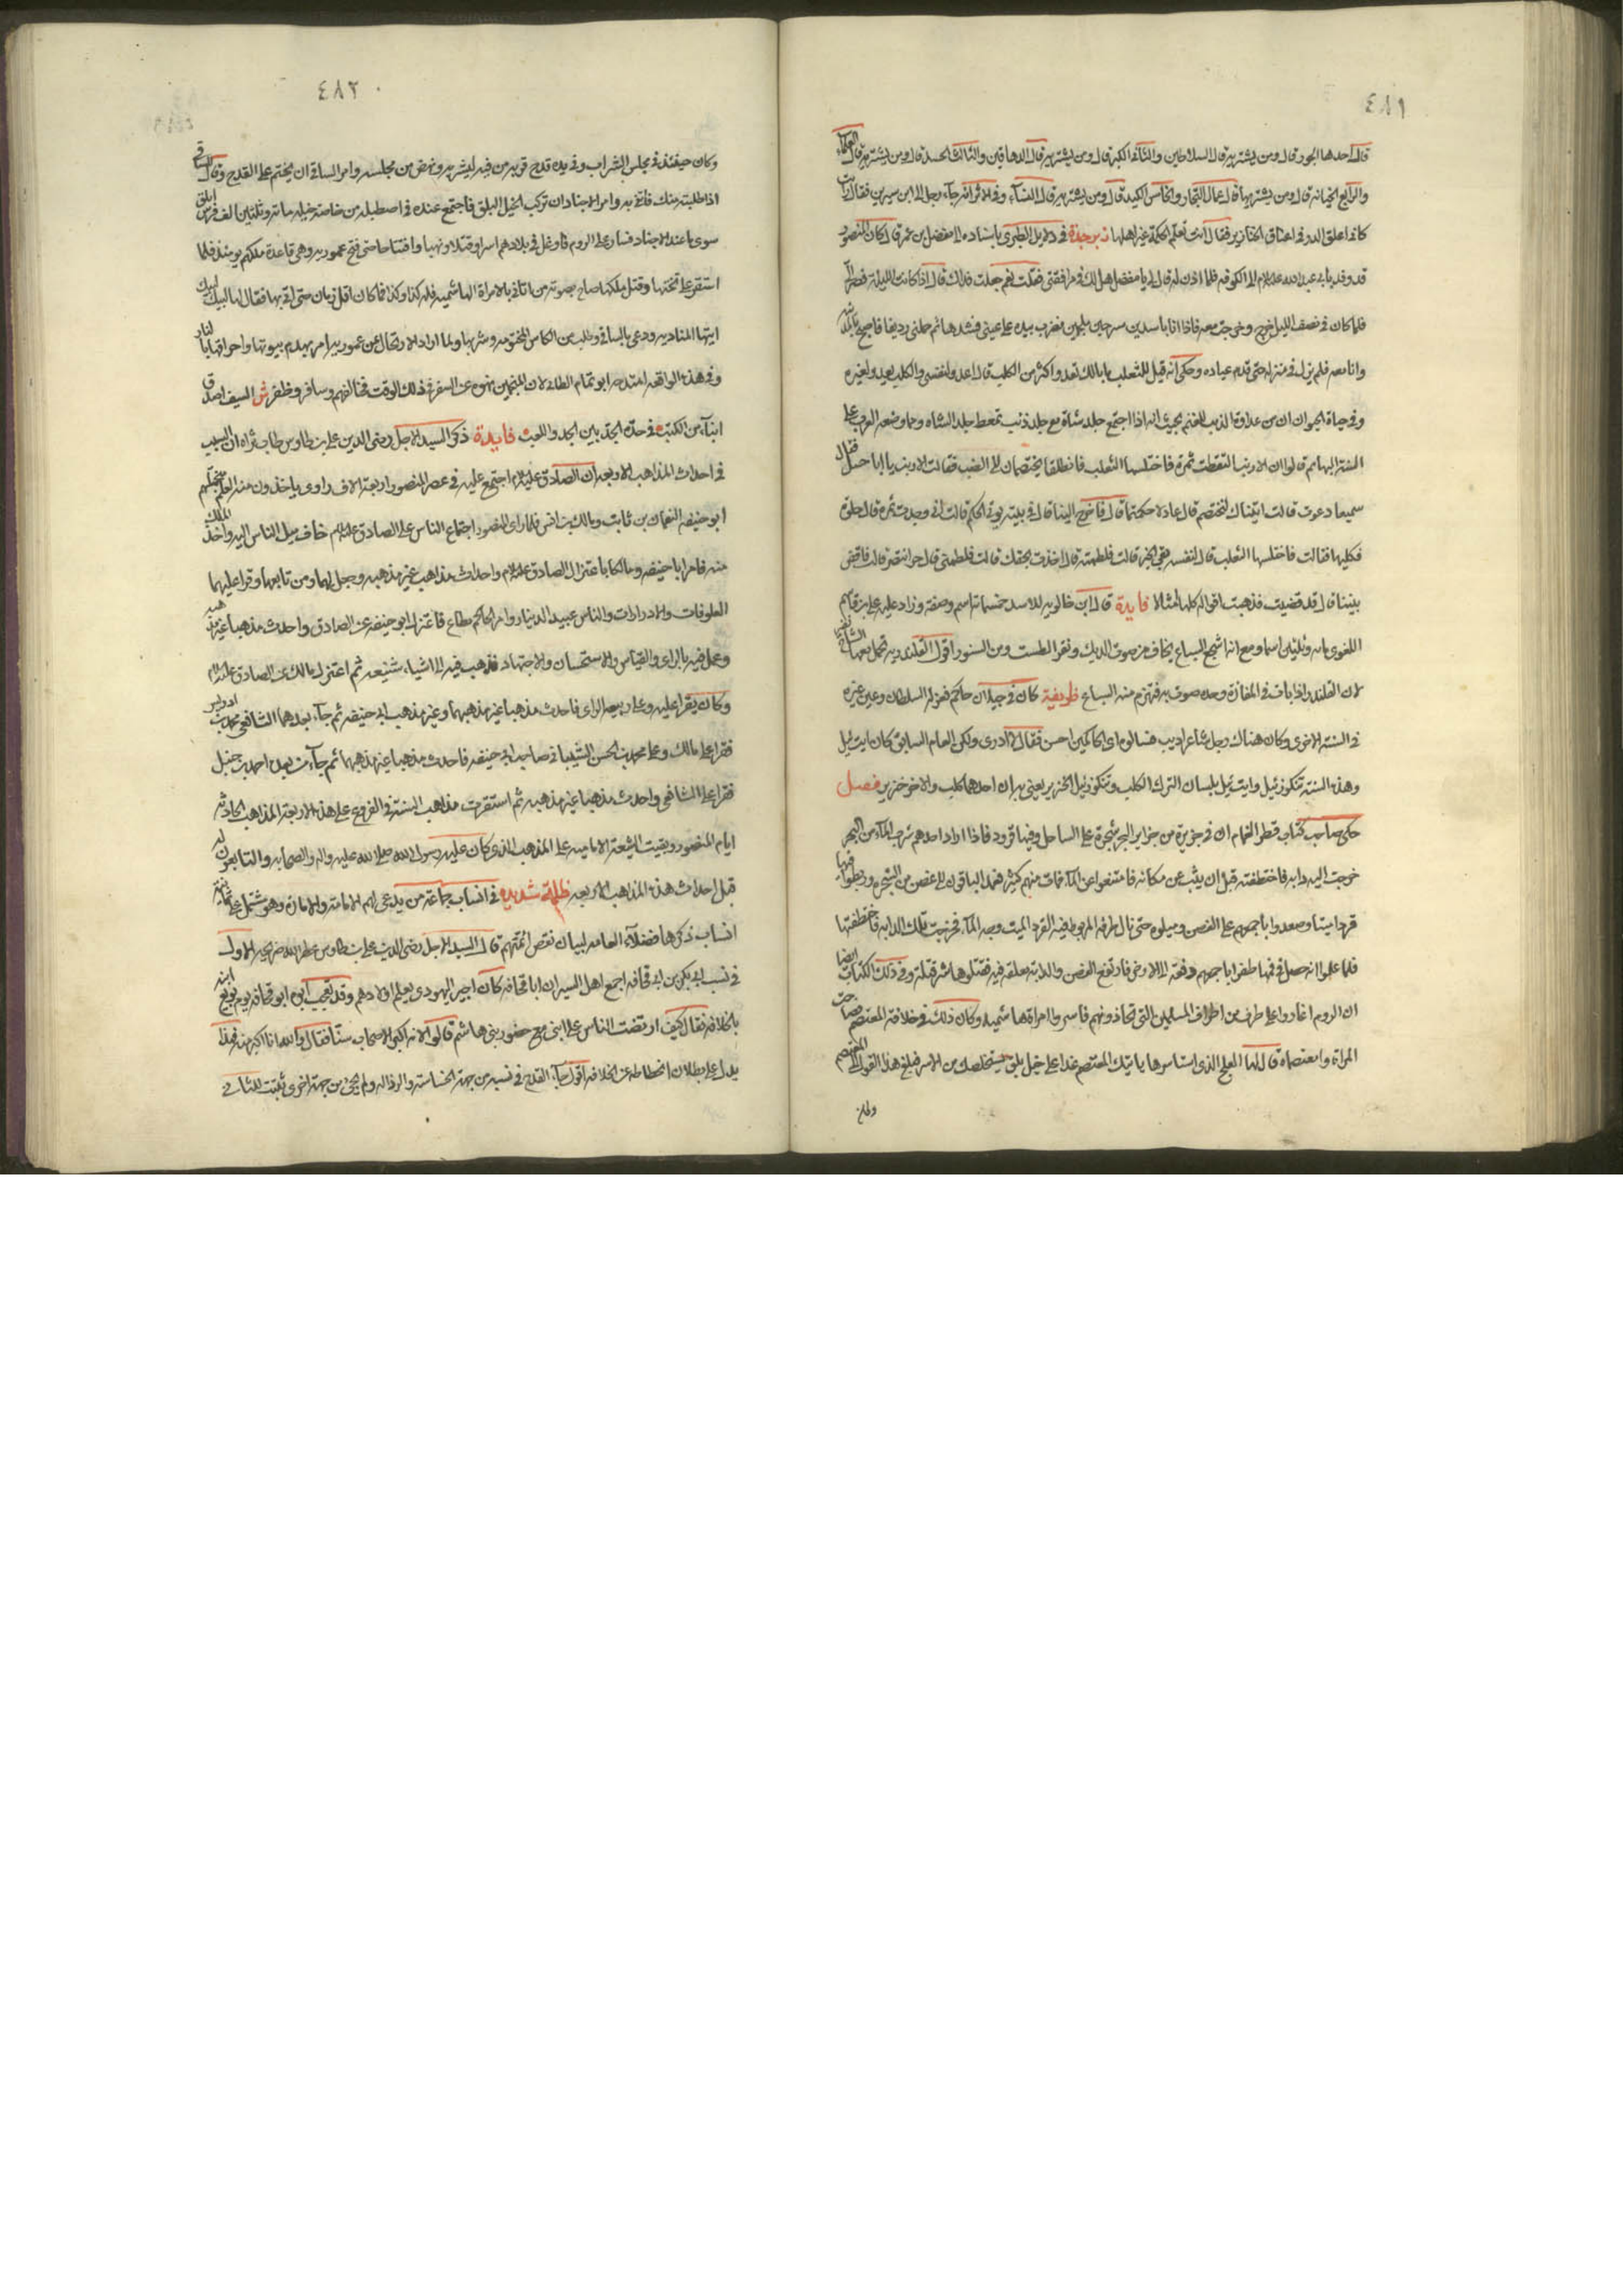 ٤٨١
قال احدها الجور قال ومن يشتريه قال السلاطين والثاني الكبر قال ومن يشتريه قال الدهاقين والثالث الحسد قال ومن يشتريه قال العلماء
والرابع الخيانة قال ومن يشتريها قال عمال التجار والخامس الكيد قال ومن يشتريه قال النساء وفي الاثر انه جاء رجل الى ابن سيرين فقال رايت
كاني اعلق الدر في اعناق الخنازير فقال انت تعلم الحكمة غير اهلها زبرجدة في دلايل الطبري باسناده الى مفضل بن عمر قال كان المنصور
قد وفد بابي عبد الله عليه السلام الى الكوفه فلما اذن له قال لي يا مفضل هل لك في مرافقتي فقلت نعم جعلت فداك قال اذا كانت الليلة فصر الي
فلما كان في نصف الليل خرج وخرجت معه فاذا انا باسدين مسرجين ملجمين فضرب بيده على عيني فشدها ثم حملني رديفا فاصبح بالمدينة
وانا معه فلم يزل في منزله حتى قدم عياله وحكى انه قيل للثعلب ما بالك تعدو اكثر من الكلب قال اعدو لنفسي والكلب يعدو لغيره
وفي حياة الحيوان ان من عداوة الذيب للغنم بحيث انه اذا اجتمع جلد شاة مع جلد ذئب تمعط جلد الشاة وما وضعه العرب على
السنة البهايم قالوا ان الارنب التقطت ثمرة فاختلسها الثعلب فانطلقا يختصمان الى الضب فقالت الارنب يا ابا حسل فقال
سميعا دعوت قالت اتيناك لنختصم قال عادلا حكمتما قالت فاخرج الينا قال في بيته يوتى الحكم قالت اني وجدت ثمرة قال حلوة
فكليها قالت فاختلسها الثعلب قال لنفسه بغى الخير قالت فلطمته قال اخذت بحقك قالت فلطمني قال حر انتصر قالت فاقض
بيننا قال قد قضيت فذهبت اقواله كلها امثالا فايدة قال ابن خالويه للاسد خمسمائة اسم وصفة وزاد عليه علي بن قاسم
اللغوي مائة وثلثين اسما ومع انه اشجع السباع يخاف من صوت الديك ونقر الطست ومن السنور اقول القلندريه تحمل معها
لان القلندر اذا بات في المفازة وحده صوت به فتهزم منه السباع ظريفة كان في حيدران حاكم فعزله السلطان وعين غيره
في السنة الاخرى وكان هناك رجل شاعر اديب فسالوه اي الحاكمين احسن فقال لا ادري ولكن العام السابق كان ايت ئيل
وهذه السنة تنكوز ئيل وايت ئيل بلسان الترك الكلب وتنكوز ئيل الخنزير يعني به ان احدهما كلب والاخر خنزير فصل
حكى صاحب كتاب قطر الغمام ان في جزيرة من جزاير البحر شجرة على الساحل وفيها قرود فاذا اراد احدهم شرب الماء من البحر
خرجت اليه دابه فاختطفته قبل ان يثب عن مكانه فامتنعوا عن الماء فمات منهم كثير فعمد الباقون الى غصن من الشجره وربطوا فيها
قردا ميتا وصعدوا باجمعهم على الغصن وميلوه حتى نال طرفه المربوط فيه القرد الميت وجه الماء فخرجت تلك الدابه فاختطفتها
فلما علموا انه حصل في فمها طفروا باجمعهم دفعة الى الارض فارتفع الغصن والدابة معلقه فيه فقتلوها شر قتلة وفي ذلك الكتاب ايضا
ان الروم اغاروا على طرف من اطراف المسلمين التي تحاذونهم فاسروا امراة هاشميه وكان ذلك في خلافة المعتصم فصاحت
المراة وا معتصماه قال لها العلج الذي استاسرها ياتيك المعتصم غدا على خيل بلق يستخلصك من الاسر فبلغ هذا القول الى المعتصم
وكان
٤٨٢
وكان حينئذ في مجلس الشراب وفي يده قدح قربه من فيه ليشربه ونهض من مجلسه وامر الساقي ان يختم على القدح وقال للساقي
اذا طلبته منك فاتني به وامر الاجناد ان تركب الخيل البلق فاجتمع عنده في اصطبله من خاصة خيله مائة وثلثين الف فرس ابلق
سوى ما عند الاجناد فسار على الروم فاوغل في بلادهم اسرا وقتلا ونهبا وافتتاحا حتى فتح عموريه وهي قاعدة ملكهم يومئذ فلما
استقر على تختها وقتل ملكها صاح بصوته من اتاني بالامراة الهاشميه فله كذا وكذا فما كان اقل زمان حتى اتي بها فقال لها لبيك لبيك
ايتها المناديه ودعى بالساقي وطلب من الكاس المختومه وشربها ولما اراد الارتحال عن عموريه امر بهدم بيوتها واحراقها بالنار
وفي هذه الواقعه امتدحه ابو تمام الطائي لان المنجمين نهوه عن السفر في ذلك الوقت فخالفهم وسافر وظفر ش السيف اصدق
انباء من الكتب في حده الحد بين الجد واللعب فايدة ذكر السيد الاجل رضي الدين علي بن طاوس طاب ثراه ان السبب
في احداث المذاهب الاربعه ان الصادق عليه السلام اجتمع عليه في عصر المنصور اربعة الاف راوي ياخذون منه العلم من جملتهم
ابو حنيفه النعمان بن ثابت ومالك بن انس فلما راى المنصور اجتماع الناس على الصادق عليه السلام خاف ميل الناس اليه واخذ الملك
منه فامر ابا حنيفه ومالكا باعتزال الصادق عليه السلام واحداث مذاهب غير مذهبه وجعل لهما ومن تابعهما وقرا عليهما
العلوفات والادرارات والناس عبيد الدينار وامر الحاكم مطاع فاعتزل ابو حنيفه عن الصادق واحدث مذهبا غير مذهبه
وعمل فيه بالراى والقياس والاستحسان والاجتهاد فذهب فيه الى اشياء شنيعه ثم اعتزل مالك عن الصادق عليه السلام
وكان يقرا عليه وعلى ربيعه الراى فاحدث مذهبا غير مذهبهما وغير مذهب ابي حنيفه ثم جاء بعدهما الشافعي محمد بن ادريس
فقرا على مالك وعلى محمد بن الحسن الشيباني صاحب ابي حنيفه فاحدث مذهبا غير مذهبهما ثم جاء من بعده احمد بن حنبل
فقرا على الشافعي واحدث مذهبا غير مذهبه ثم استقرت مذاهب السنة في الفروع على هذه الاربعة المذاهب الحادثة
ايام المنصور وبقيت الشيعة الاماميه على المذهب الذي كان عليه رسول الله صلى الله عليه واله والصحابه والتابعون له
قبل احداث هذه المذاهب الاربعه ظلمة شديدة في انساب جماعة من يدعى لهم الامامة والامارة وهو مشتمل على ثمانية
انساب ذكرها فضلاء العامه لبيان نقص ائمتهم قال السيد الاجل رضي الدين علي بن طاوس عطر الله ضريحه الاول
في نسب ابي بكر بن ابي قحافه اجمع اهل السير ان ابا قحافه كان اجير اليهودي يعلم اولادهم وقد تعجب ابوه ابو قحافه يوم بويع ابنه
بالخلافه فقال كيف ارتضت الناس على ابني مع حضور بني هاشم قالوا لانه اكبر الاصحاب سنا فقال والله انا اكبر منه فهذا
يدل على بطلان انحطاطه عن الخلافه اقول جاء القدح في نسبه من جهة الخساسة والرذاله ولم يجئ من جهة اخرى ثبتت للثاني